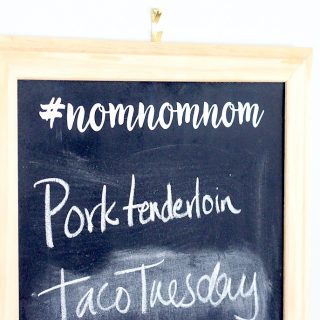 #nomnomnom
Pork tenderloin
Taco Tuesday